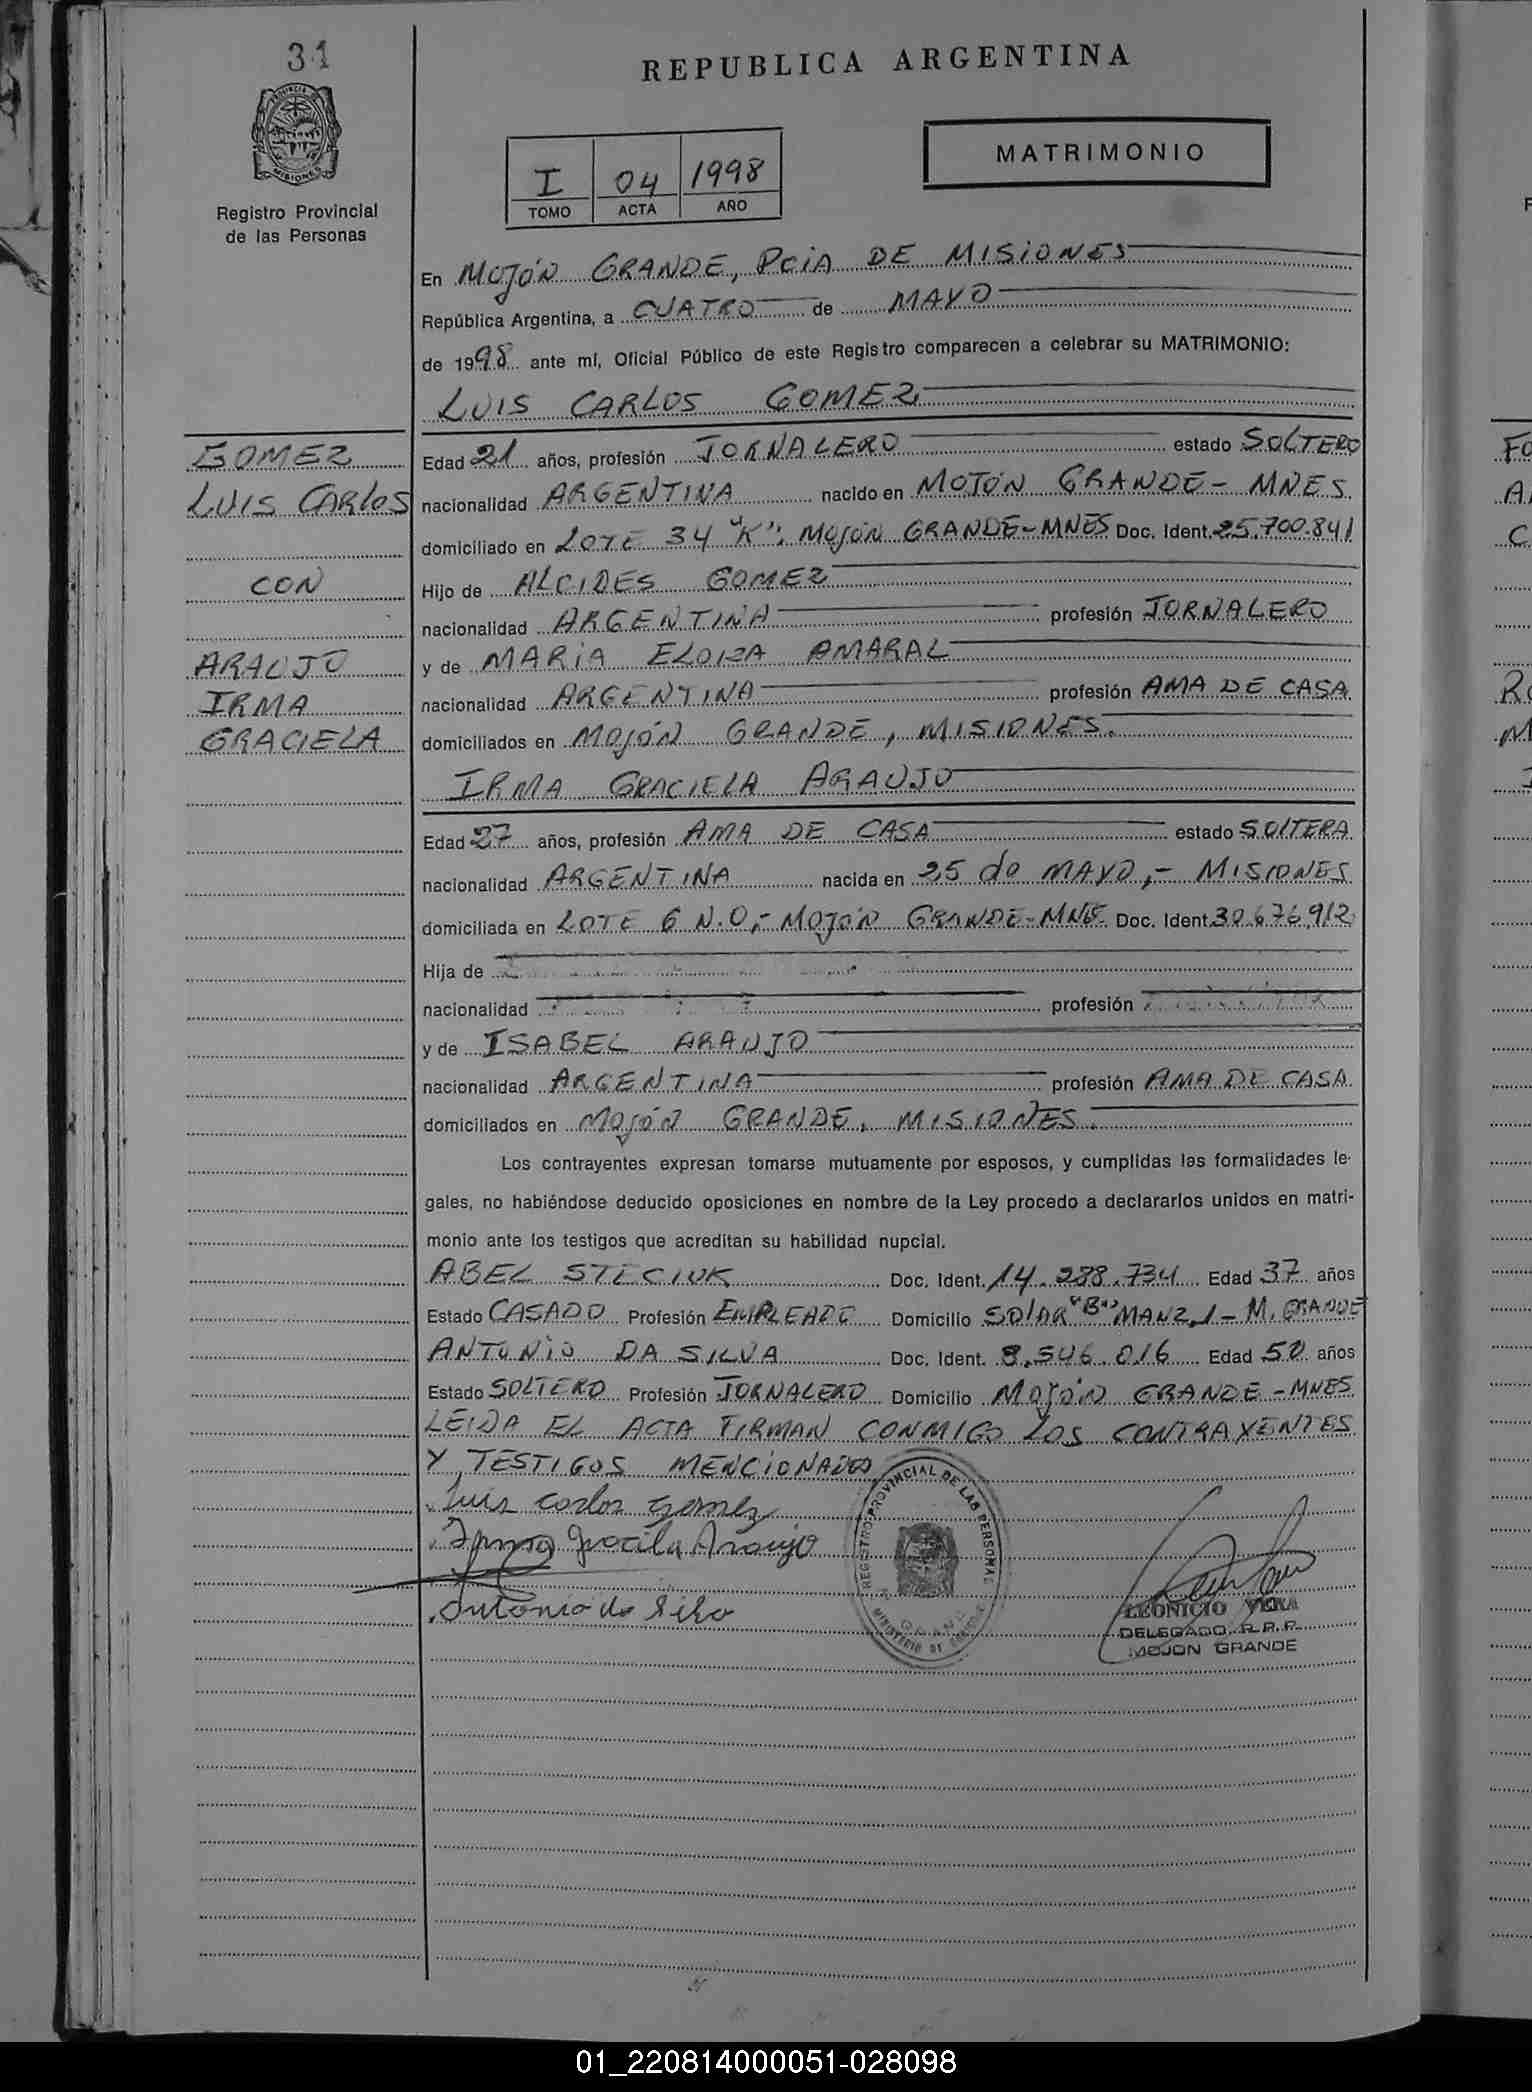 31
REPUBLICA ARGENTINA
PROVINCIA DE
MISIONES
Registro Provincial
de las Personas
MATRIMONIO
I 04 1998
TOMO ACTA AÑO
En MOJÓN GRANDE, PCIA DE MISIONES
República Argentina, a CUATRO de MAYO
de 1998 ante mí, Oficial Público de este Registro comparecen a celebrar su MATRIMONIO:
LUIS CARLOS GOMEZ
GOMEZ
LUIS CARLOS
CON
ARAUJO
IRMA
GRACIELA
Edad 21 años, profesión JORNALERO estado SOLTERO
nacionalidad ARGENTINA nacido en MOJÓN GRANDE - MNES
domiciliado en LOTE 34 "K"; MOJÓN GRANDE-MNES Doc. Ident. 25.700.841
Hijo de ALCIDES GOMEZ
nacionalidad ARGENTINA profesión JORNALERO
y de MARIA ELOIZA AMARAL
nacionalidad ARGENTINA profesión AMA DE CASA
domiciliados en MOJÓN GRANDE, MISIONES.
IRMA GRACIELA ARAUJO
Edad 27 años, profesión AMA DE CASA estado SOLTERA
nacionalidad ARGENTINA nacida en 25 de MAYO,- MISIONES
domiciliada en LOTE 6 N.O,- MOJÓN GRANDE-MNES Doc. Ident 30.676.912
Hija de
nacionalidad profesión
y de ISABEL ARAUJO
nacionalidad ARGENTINA profesión AMA DE CASA
domiciliados en MOJÓN GRANDE, MISIONES.
Los contrayentes expresan tomarse mutuamente por esposos, y cumplidas las formalidades le-
gales, no habiéndose deducido oposiciones en nombre de la Ley procedo a declararlos unidos en matri-
monio ante los testigos que acreditan su habilidad nupcial.
ABEL STECIUK Doc. Ident. 14.288.734 Edad 37 años
Estado CASADO Profesión EMPLEADO Domicilio SOLAR "B" MANZ. 1 - M. GRANDE
ANTONIO DA SILVA Doc. Ident. 8.546.016 Edad 50 años
Estado SOLTERO Profesión JORNALERO Domicilio MOJÓN GRANDE - MNES
LEIDA EL ACTA FIRMAN CONMIGO LOS CONTRAYENTES
Y TESTIGOS MENCIONADOS
Luis Carlos Gomez
Irma Graciela Araujo
Antonio da Silva
REGISTRO PROVINCIAL DE LAS PERSONAS
LEONICIO VERA
DELEGADO R.P.P.
MOJON GRANDE
01_220814000051-028098